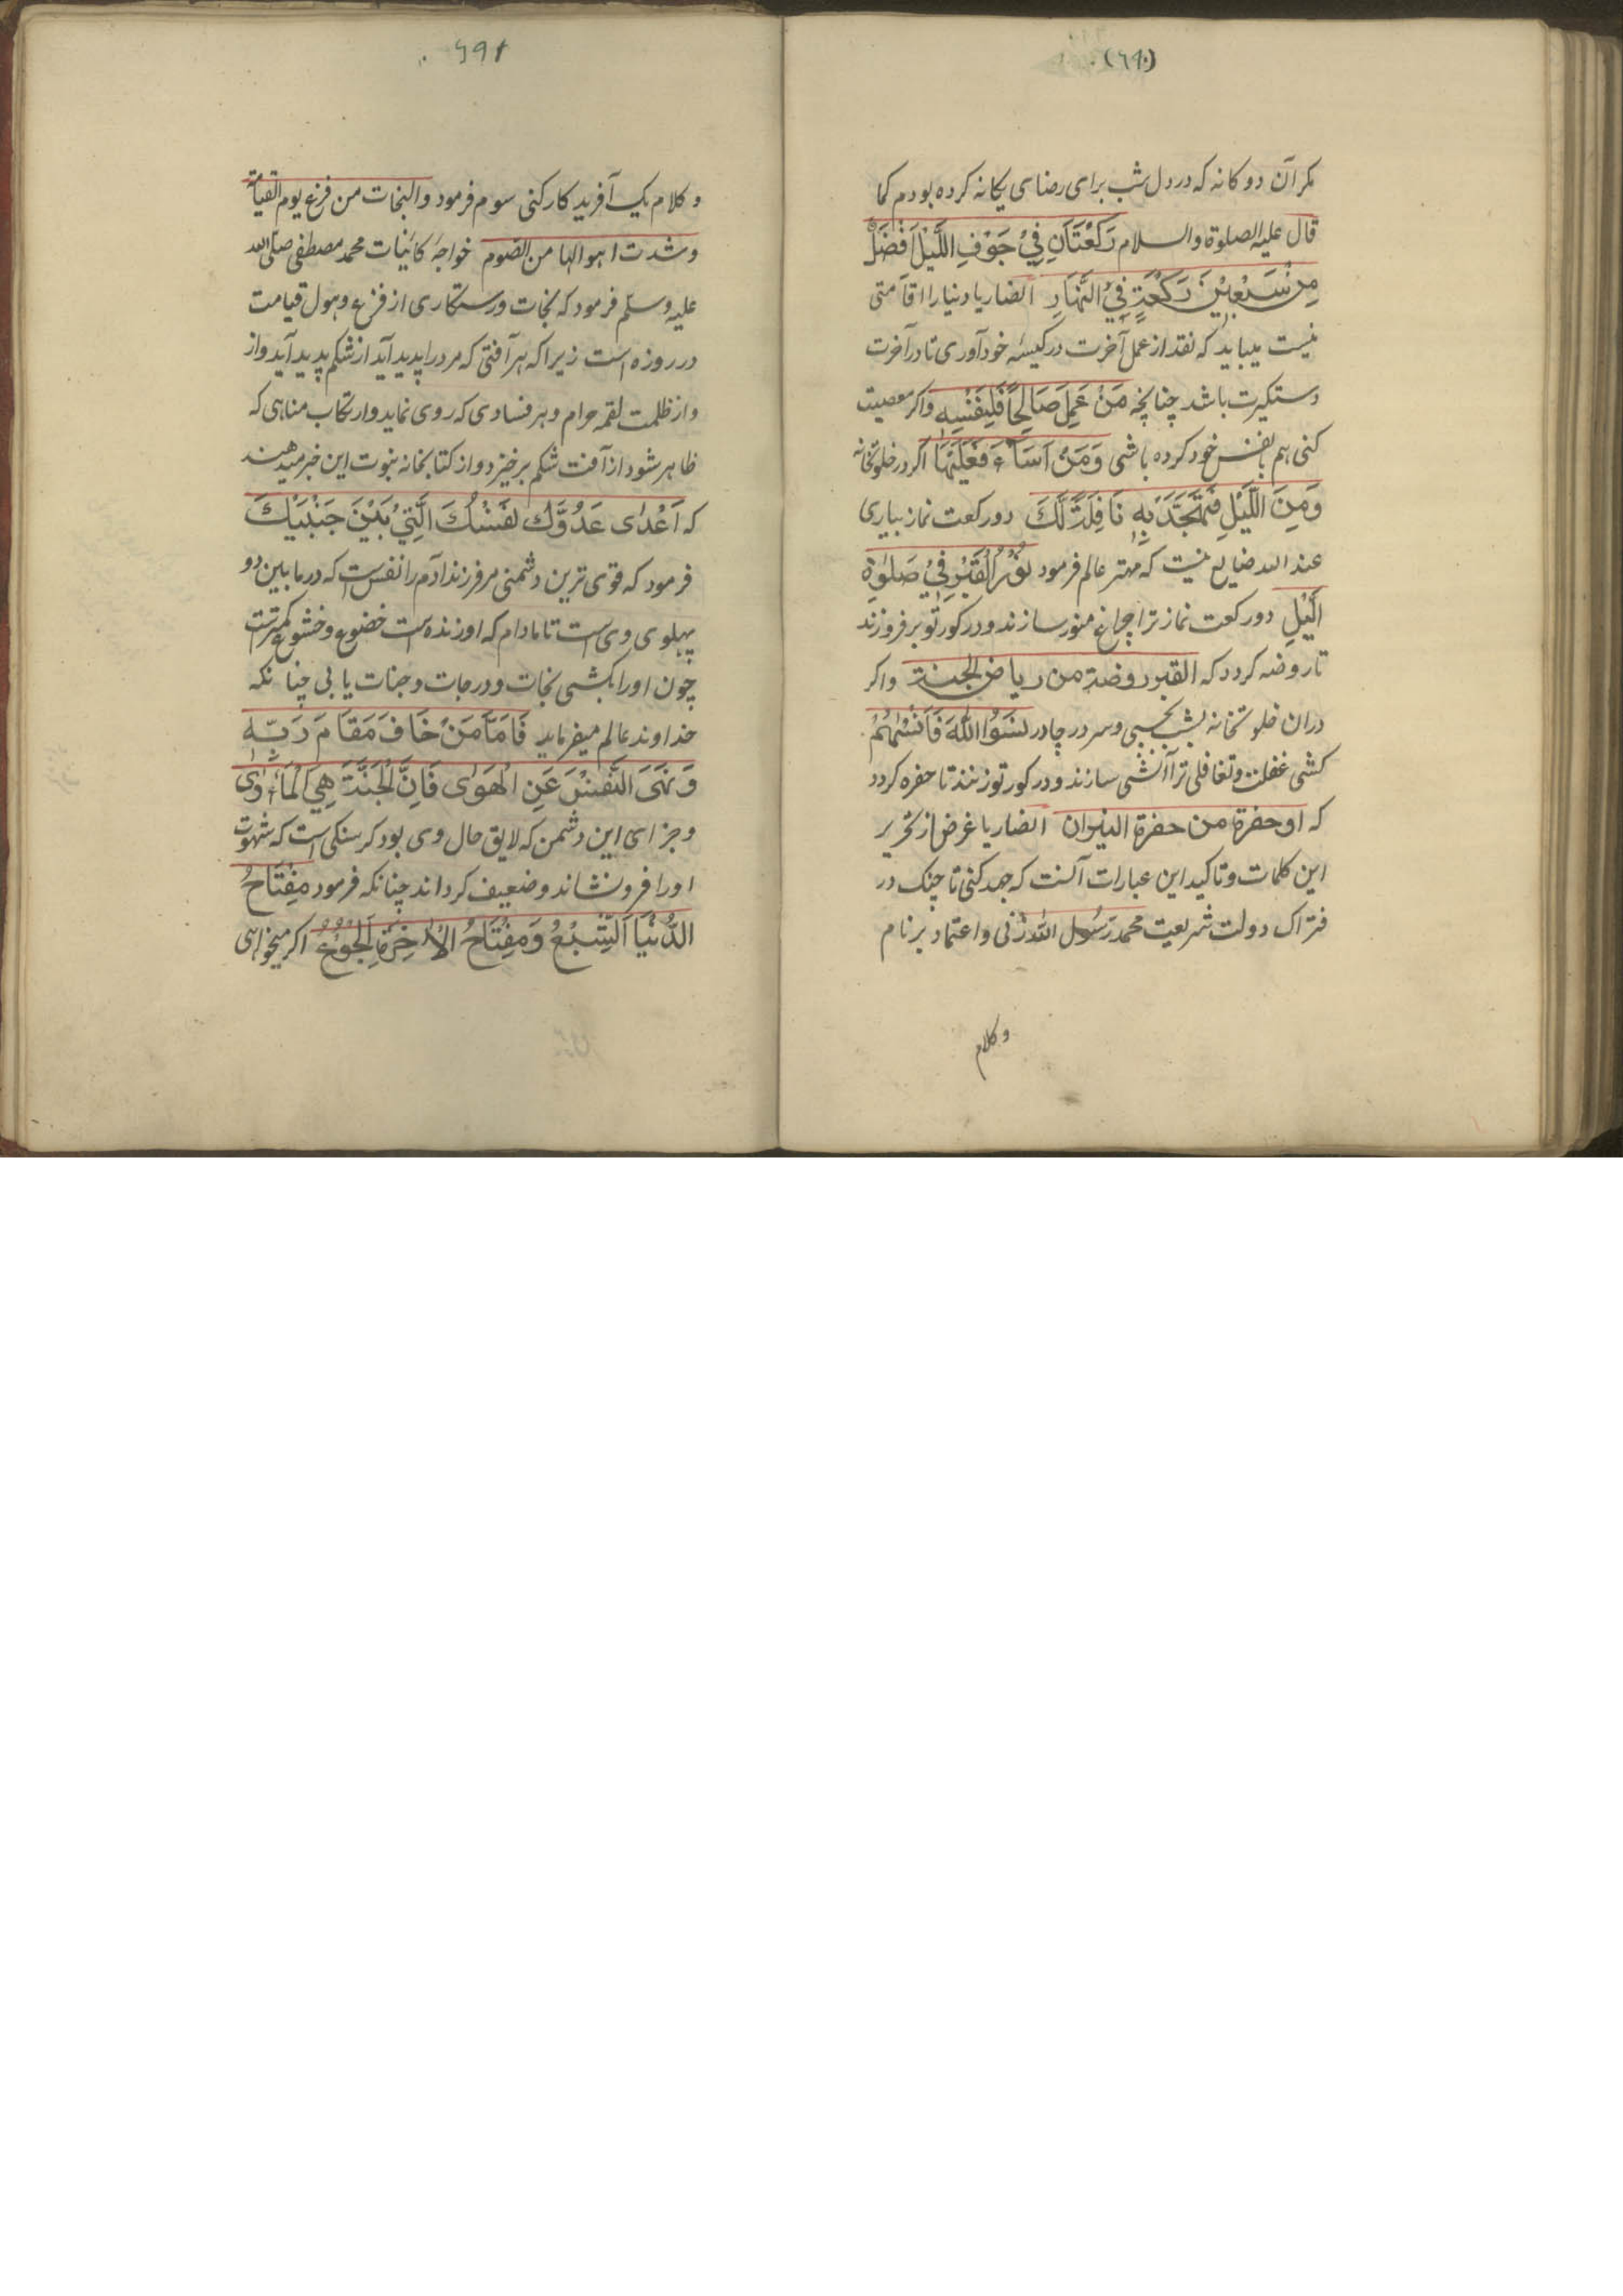 (٦٩٠)
مکر آن دوکانه که در دل شب برای رضای یکانه کرده بودم کما
قال علیه الصلوة والسلام رَکْعَتَانِ فِیْ جَوْفِ اللَّیْلِ اَفْضَلُ
مِنْ سَبْعِیْنَ رَکْعَةٍ فِیْ النَّهَارِ انصاریا دنیا را اقامتی
نیست میباید که نقد از عمل آخرت در کیسهٔ خود آوری تا در آخرت
دستکیرت باشد چنانچه مَنْ عَمِلَ صَالِحًا فَلِنَفْسِهٖ واکر معصیت
کنی هم بنفس خود کرده باشی وَمَنْ اَسَآءَ فَعَلَیْهَا اکر در خلوتخانه
وَمِنَ اللَّیْلِ فَتَهَجَّدْ بِهٖ نَافِلَةً لَّکَ دو رکعت نماز بیاری
عند الله ضایع نیست که مهتر عالم فرمود نُوْرُ الْقَبْرِ فِیْ صَلٰوةِ
اللَّیْلِ دو رکعت نماز ترا چراغ منور سازند و در کور تو برفروزند
تا روضه کردد که القبر روضة من ریاض الجنة واکر
دران خلوتخانه بشب بخسپی و سر در چادر نَسُوا اللّٰهَ فَاَنْسٰهُمْ
کشی غفلت و تغافلی ترا آتشی سازند و در کور تو زنند تا حفره کردد
که او حفرة من حفرة النیران انصاریا غرض از تحریر
این کلمات و تاکید این عبارات آنست که جهد کنی تا چنک در
فتراک دولت شریعت محمد رَسُول اللّٰه زنی و اعتماد بر نام
و کلام
٦٩١
و کلام یک آفرید کار کنی سوم فرمود والنجات من فزع یوم القیامة
وشدت اهوالها من الصوم خواجهٔ کائنات محمد مصطفی صلی الله
علیه وسلّم فرمود که نجات و رستکاری از فزع و هول قیامت
در روزه است زیرا که هر آفتی که مرد را پدید آید از شکم پدید آید و از
و از ظلمت لقمه حرام و هر فسادی که روی نماید و ارتکاب مناهی که
ظاهر شود از آفت شکم برخیزد و از کتابخانه نبوت این خبر میدهند
که اَعْدٰی عَدُوِّكَ نَفْسُكَ الَّتِیْ بَیْنَ جَنْبَیْكَ
فرمود که قوی ترین دشمنی مر فرزند آدم را نفس است که در مابین دو
پهلوی وی است تا مادام که او زنده است خضوع و خشوع کمتر است
چون او را بکشی نجات و درجات و جنات یابی چنانکه
خداوند عالم میفرماید فَاَمَّا مَنْ خَافَ مَقَامَ رَبِّهٖ
وَنَهَی النَّفْسَ عَنِ الْهَوٰی فَاِنَّ الْجَنَّةَ هِیَ الْمَاْوٰی
و جزای این دشمن که لایق حال وی بود کرسنکی است که شهوت
او را فرونشاند و ضعیف کرداند چنانکه فرمود مِفْتَاحُ
الدُّنْیَا اَلشِّبْعُ وَمِفْتَاحُ الْاٰخِرَةِ اَلْجُوْعُ اکر میخواهی